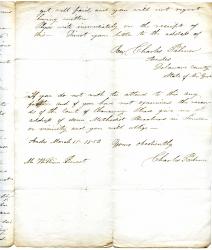 get well paid, and you will not regret
having written.
Please write immediately on the receipt of
this — Direct your letter to the address of
Rev Charles Palmer
Andes
Delaware County
State of New York
If you do not wish to attend to this any
farther and if you have not examined the records
of the Court of Chancery Please give me the
address of some Methodist Preachers in
or vicinity and you will oblige —
Andes March 11. 1852 Yours obediently
Charles Palmer
Mr William